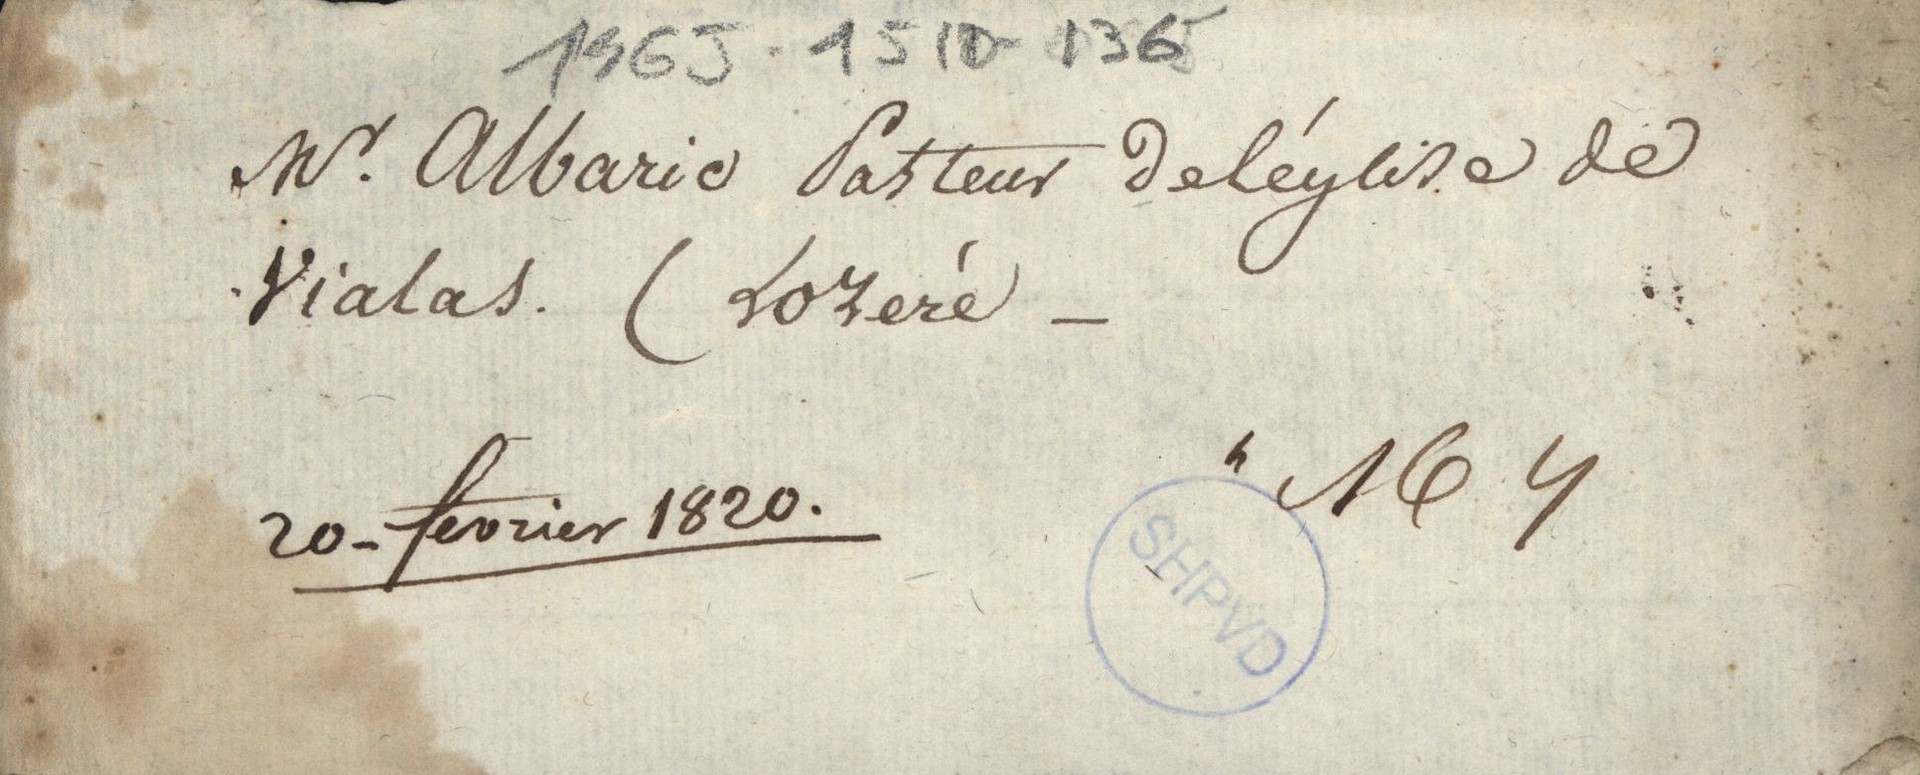 1965 - 1510 - 136
Mr. Albaric Pasteur De l'église de
Vialas. (Lozeré -
20 - fevrier 1820.
SHPVD